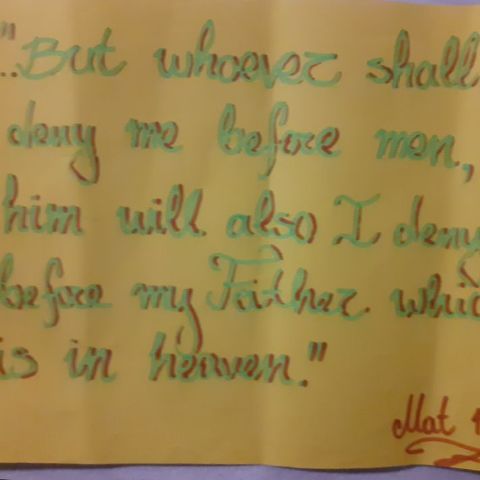 "..But whoever shall
deny me before men,
him will also I deny
before my Father whic
is in heaven."
Mat